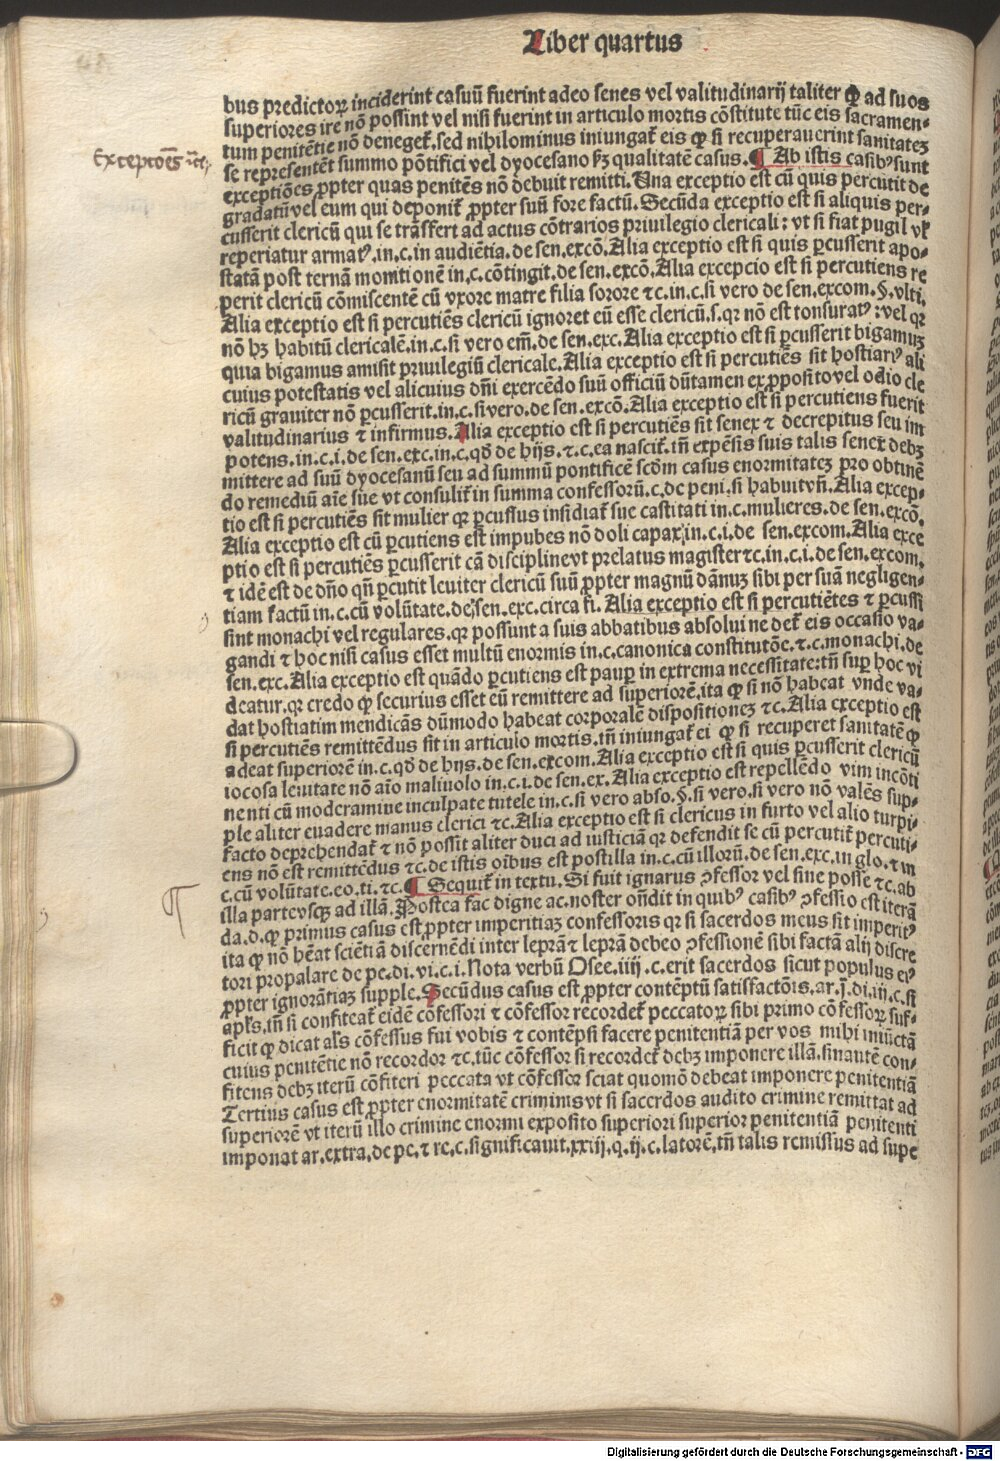 Liber quartus
bus predictoꝝ inciderint casuū fuerint adeo senes vel valitudinarij taliter ꝙ ad suos
superiores ire nō possint vel nisi fuerint in articulo mortis cōstitute tūc eis sacramen-
tum penitētie nō denegeƭ. sed nihilominus iniungat̄ eis ꝙ si recuperauerint sanitateꝫ
Exceptōes
se representēt summo pōtifici vel dyocesano ẜꝫ qualitatē casus. ¶ Ab istis casibꝰ sunt
exceptiōes ꝓpter quas penitēs nō debuit remitti. Una exceptio est cū quis percutit de
gradatū vel eum qui deponit̄ ꝓpter suū fore factū. Secūda exceptio est si aliquis per-
cusserit clericū qui se trāsfert ad actus cōtrarios priuilegio clericali: vt si fiat pugil vl̄
reperiatur armatꝰ. in. c. in audiētia. de sen. excō. Alia exceptio est si quis ꝑcusserit apo-
statā post ternā monitionē in. c. cōtingit. de sen. excō. Alia excepcio est si percutiens re
perit clericū cōmiscentē cū vxore matre filia sorore ⁊c. in. c. si vero de sen. excom. §. vlti.
Alia exceptio est si percutiēs clericū ignoret eū esse clericū. s. qꝛ nō est tonsuratꝰ: vel qꝛ
nō hꝫ habitū clericalē. in. c. si vero em̄. de sen. exc. Alia exceptio est si ꝑcusserit bigamuꝫ
quia bigamus amisit priuilegiū clericale. Alia exceptio est si percutiēs sit hostiariꝰ ali
cuius potestatis vel alicuius dn̄i exercēdo suū officiū dūtamen ex ꝓposito vel odio cle
ricū grauiter nō ꝑcusserit. in. c. si vero. de sen. excō. Alia exceptio est si percutiens fuerit
valitudinarius ⁊ infirmus. Alia exceptio est si percutiēs sit senex ⁊ decrepitus seu im
potens. in. c. i. de sen. exc. in. c. qd̄ de hijs. ⁊. c. ea nascit̄. in̄ expēsis suis talis senex debꝫ
mittere ad suū dyocesanū seu ad summū pontificē scd̄m casus enormitateꝫ pro obtinē
do remediū aīe sue vt consulit̄ in summa confessorū. c. de peni. si habuit vn̄. Alia excep-
tio est si percutiēs sit mulier qꝛ ꝑcussus insidiat̄ sue castitati in. c. mulieres. de sen. excō.
Alia exceptio est cū ꝑcutiens est impubes nō doli capax. in. c. i. de sen. excom. Alia exce
ptio est si percutiēs ꝑcusserit cā discipline vt prelatus magister ⁊c. in. c. i. de sen. excom.
⁊ idē est de dn̄o qn̄ ꝑcutit leuiter clericū suū ꝓpter magnū dānuꝫ sibi per suā negligen-
tiam factū in. c. cū volūtate. de. sen. exc. circa fi. Alia exceptio est si percutiētes ⁊ ꝑcussi
sint monachi vel regulares. qꝛ possunt a suis abbatibus absolui ne det̄ eis occasio va-
gandi ⁊ hoc nisi casus esset multū enormis in. c. canonica constitutōe. ⁊. c. monachi. de
sen. exc. Alia exceptio est quādo ꝑcutiens est pauꝑ in extrema necessitate: tn̄ suꝑ hoc vi
deatur. qꝛ credo ꝙ securius esset eū remittere ad superiorē. ita ꝙ si nō habeat vnde va-
dat hostiatim mendicās dūmodo habeat corporalē dispositioneꝫ ⁊c. Alia exceptio est
si percutiēs remittēdus sit in articulo mortis. in̄ iniungat̄ ei ꝙ si recuperet sanitatē ꝙ
adeat superiorē in. c. qd̄ de hijs. de sen. excom. Alia exceptio est si quis ꝑcusserit clericū
iocosa leuitate nō aīo maliuolo in. c. i. de sen. ex. Alia exceptio est repellēdo vim incōti
nenti cū moderamine inculpate tutele in. c. si vero abso. §. si vero. si vero nō valēs sup-
ple aliter euadere manus clerici ⁊c. Alia exceptio est si clericus in furto vel alio turpi-
facto deprehendat̄ ⁊ nō possit aliter duci ad iusticiā qꝛ defendit se cū percutit̄ percuti-
ens nō est remittēdus ⁊c. de istis oībus est postilla in. c. cū illorū. de sen. exc. in glo. ⁊ in
c. cū volūtate. eo. ti. ⁊c. ¶ Sequit̄ in textu. Si fuit ignarus ꝯfessor vel sine posse ⁊c. ab
illa parte vsqꝫ ad illā. Postea fac digne ac. noster on̄dit in quibꝰ casibꝰ ꝯfessio est iterā
da. d. ꝙ primus casus est ꝓpter imperitiaꝫ confessoris qꝛ si sacerdos meus sit imperitꝰ
ita ꝙ nō hēat sciētiā discernēdi inter leprā ⁊ leprā debeo ꝯfessionē sibi factā alij discre
tori propalare de pe. di. vi. c. i. Nota verbū Osee. iiij. c. erit sacerdos sicut populus eiꝰ
ꝓpter ignorātiaꝫ supple. Secūdus casus est ꝓpter contēptū satisfactōis. ar. j. di. iij. c. si
apl̄s. in̄ si confiteat̄ eidē cōfessori ⁊ cōfessor recordet̄ peccatoꝝ sibi primo cōfessoꝝ suf-
ficit ꝙ dicat al̄s cōfessus fui vobis ⁊ contēpsi facere penitentiā per vos mihi iniūctā
cuius penitētie nō recordor ⁊c. tūc cōfessor si recordet̄ debꝫ imponere illā. sin autē con-
fitens debꝫ iterū cōfiteri peccata vt cōfessor sciat quomō debeat imponere penitentiā
Tertius casus est ꝓpter enormitatē criminis vt si sacerdos audito crimine remittat ad
superiorē vt iterū illo crimine enormi exposito superiori superior penitentiā penitenti
imponat ar. extra. de pe. ⁊ re. c. significauit. xxiij. q. ij. c. latorē. tn̄ talis remissus ad supe
Digitalisierung gefördert durch die Deutsche Forschungsgemeinschaft - DFG